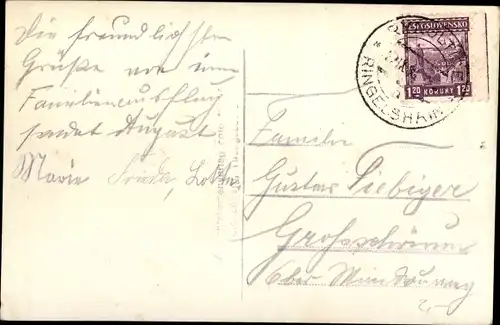 Die freundlichsten
Grüße von einem
Familienausflug
sendet August
Marie Frieda, Lotte
Familie
Gustav Liebiger
Grossschönau
ČESKOSLOVENSKO
1.20 KORUNY 1.20
RINGELSHAIN